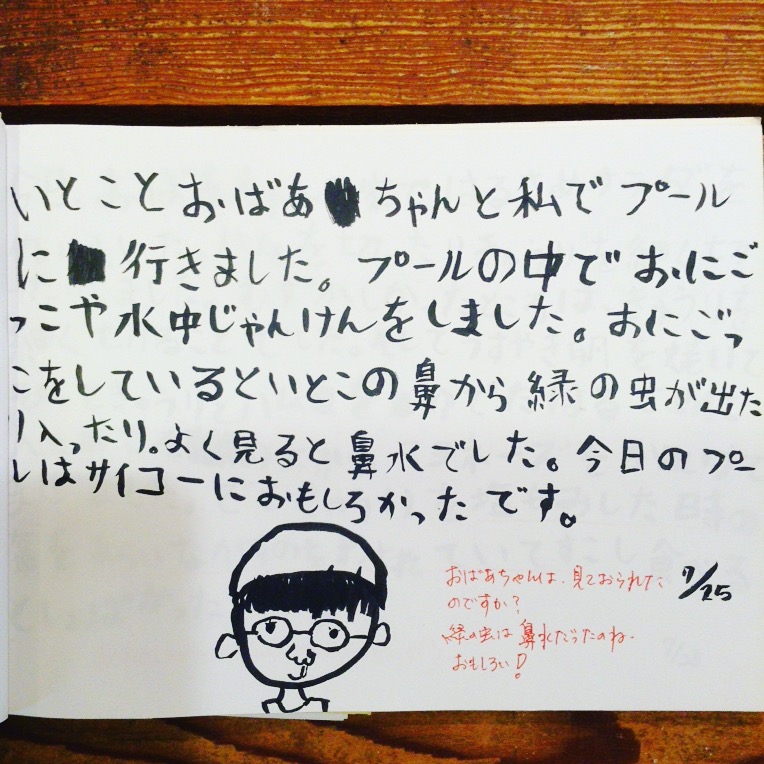 いとことおばあちゃんと私でプール
に行きました。プールの中でおにご
っこや水中じゃんけんをしました。おにごっ
こをしているといとこの鼻から緑の虫が出た
り入ったり。よく見ると鼻水でした。今日のプー
ルはサイコーにおもしろかったです。
おばあちゃんは、見ておられた
のですか?
緑の虫は鼻水だったのね。
おもしろい!
7/25